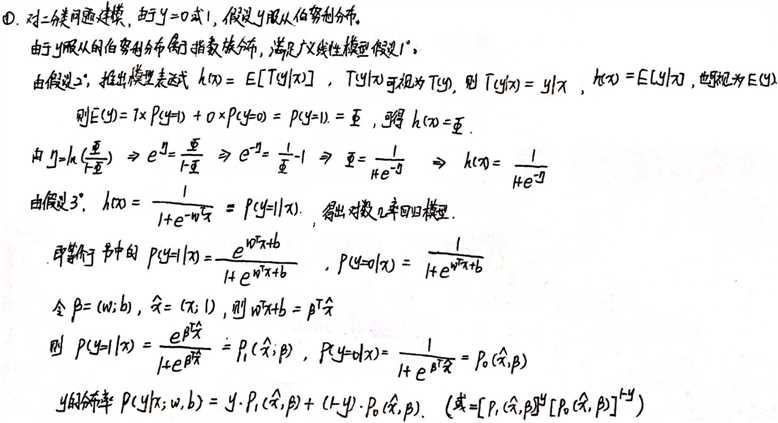 ①. 对二分类问题建模, 由于y=0或1, 假设y服从伯努利分布。
由于y服从的伯努利分布属于指数族分布, 满足广义线性模型假设1°。
由假设2°, 推出模型表达式 h(x) = E[T(y|x)] , T(y|x)可视为T(y), 则 T(y|x) = y|x , h(x) = E[y|x], 也可视为E(y)
则E(y) = 1×P(y=1) + 0×P(y=0) = P(y=1) = Φ , 可得 h(x)=Φ.
由 η=ln(Φ/(1-Φ)) ⇒ e^η = Φ/(1-Φ) ⇒ e^-η = 1/Φ - 1 ⇒ Φ = 1/(1+e^-η) ⇒ h(x) = 1/(1+e^-η)
由假设3°. h(x) = 1/(1+e^-wᵀx) = P(y=1|x). , 得出对数几率回归模型.
即等价于书中的 P(y=1|x) = e^(wᵀx+b)/(1+e^(wᵀx+b)) , P(y=0|x) = 1/(1+e^(wᵀx+b))
令 β=(w;b), x̂=(x;1), 则 wᵀx+b = βᵀx̂
则 P(y=1|x) = e^(βᵀx̂)/(1+e^(βᵀx̂)) = P₁(x̂;β) , P(y=0|x) = 1/(1+e^(βᵀx̂)) = P₀(x̂,β)
y的分布率 P(y|x;w,b) = y·P₁(x̂,β) + (1-y)·P₀(x̂,β). (或=[P₁(x̂,β)]^y[P₀(x̂,β)]^(1-y))